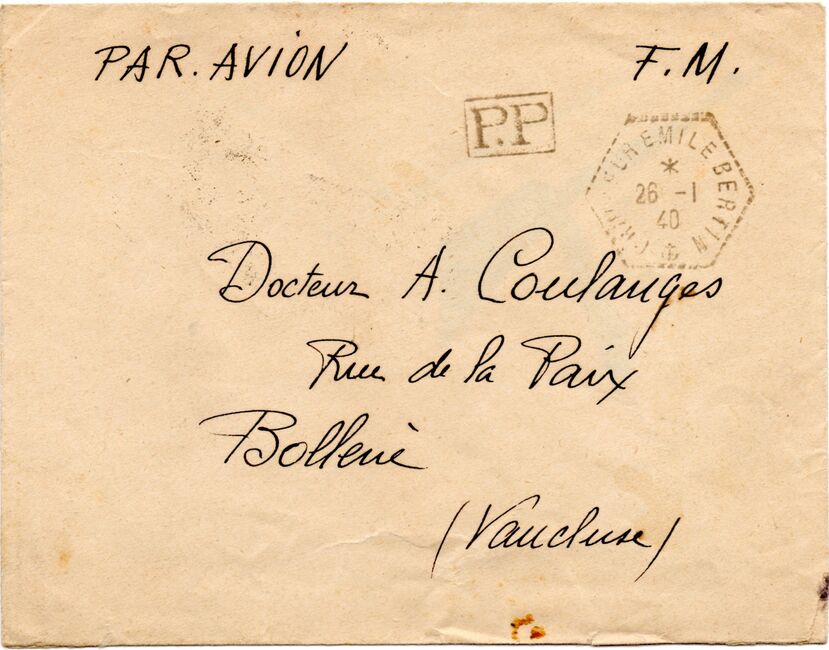 PAR. AVION F.M.
P.P
CROISEUR EMILE BERTIN
*
26 -1
40
Docteur A. Coulanges
Rue de la Paix
Bollène
(Vaucluse)